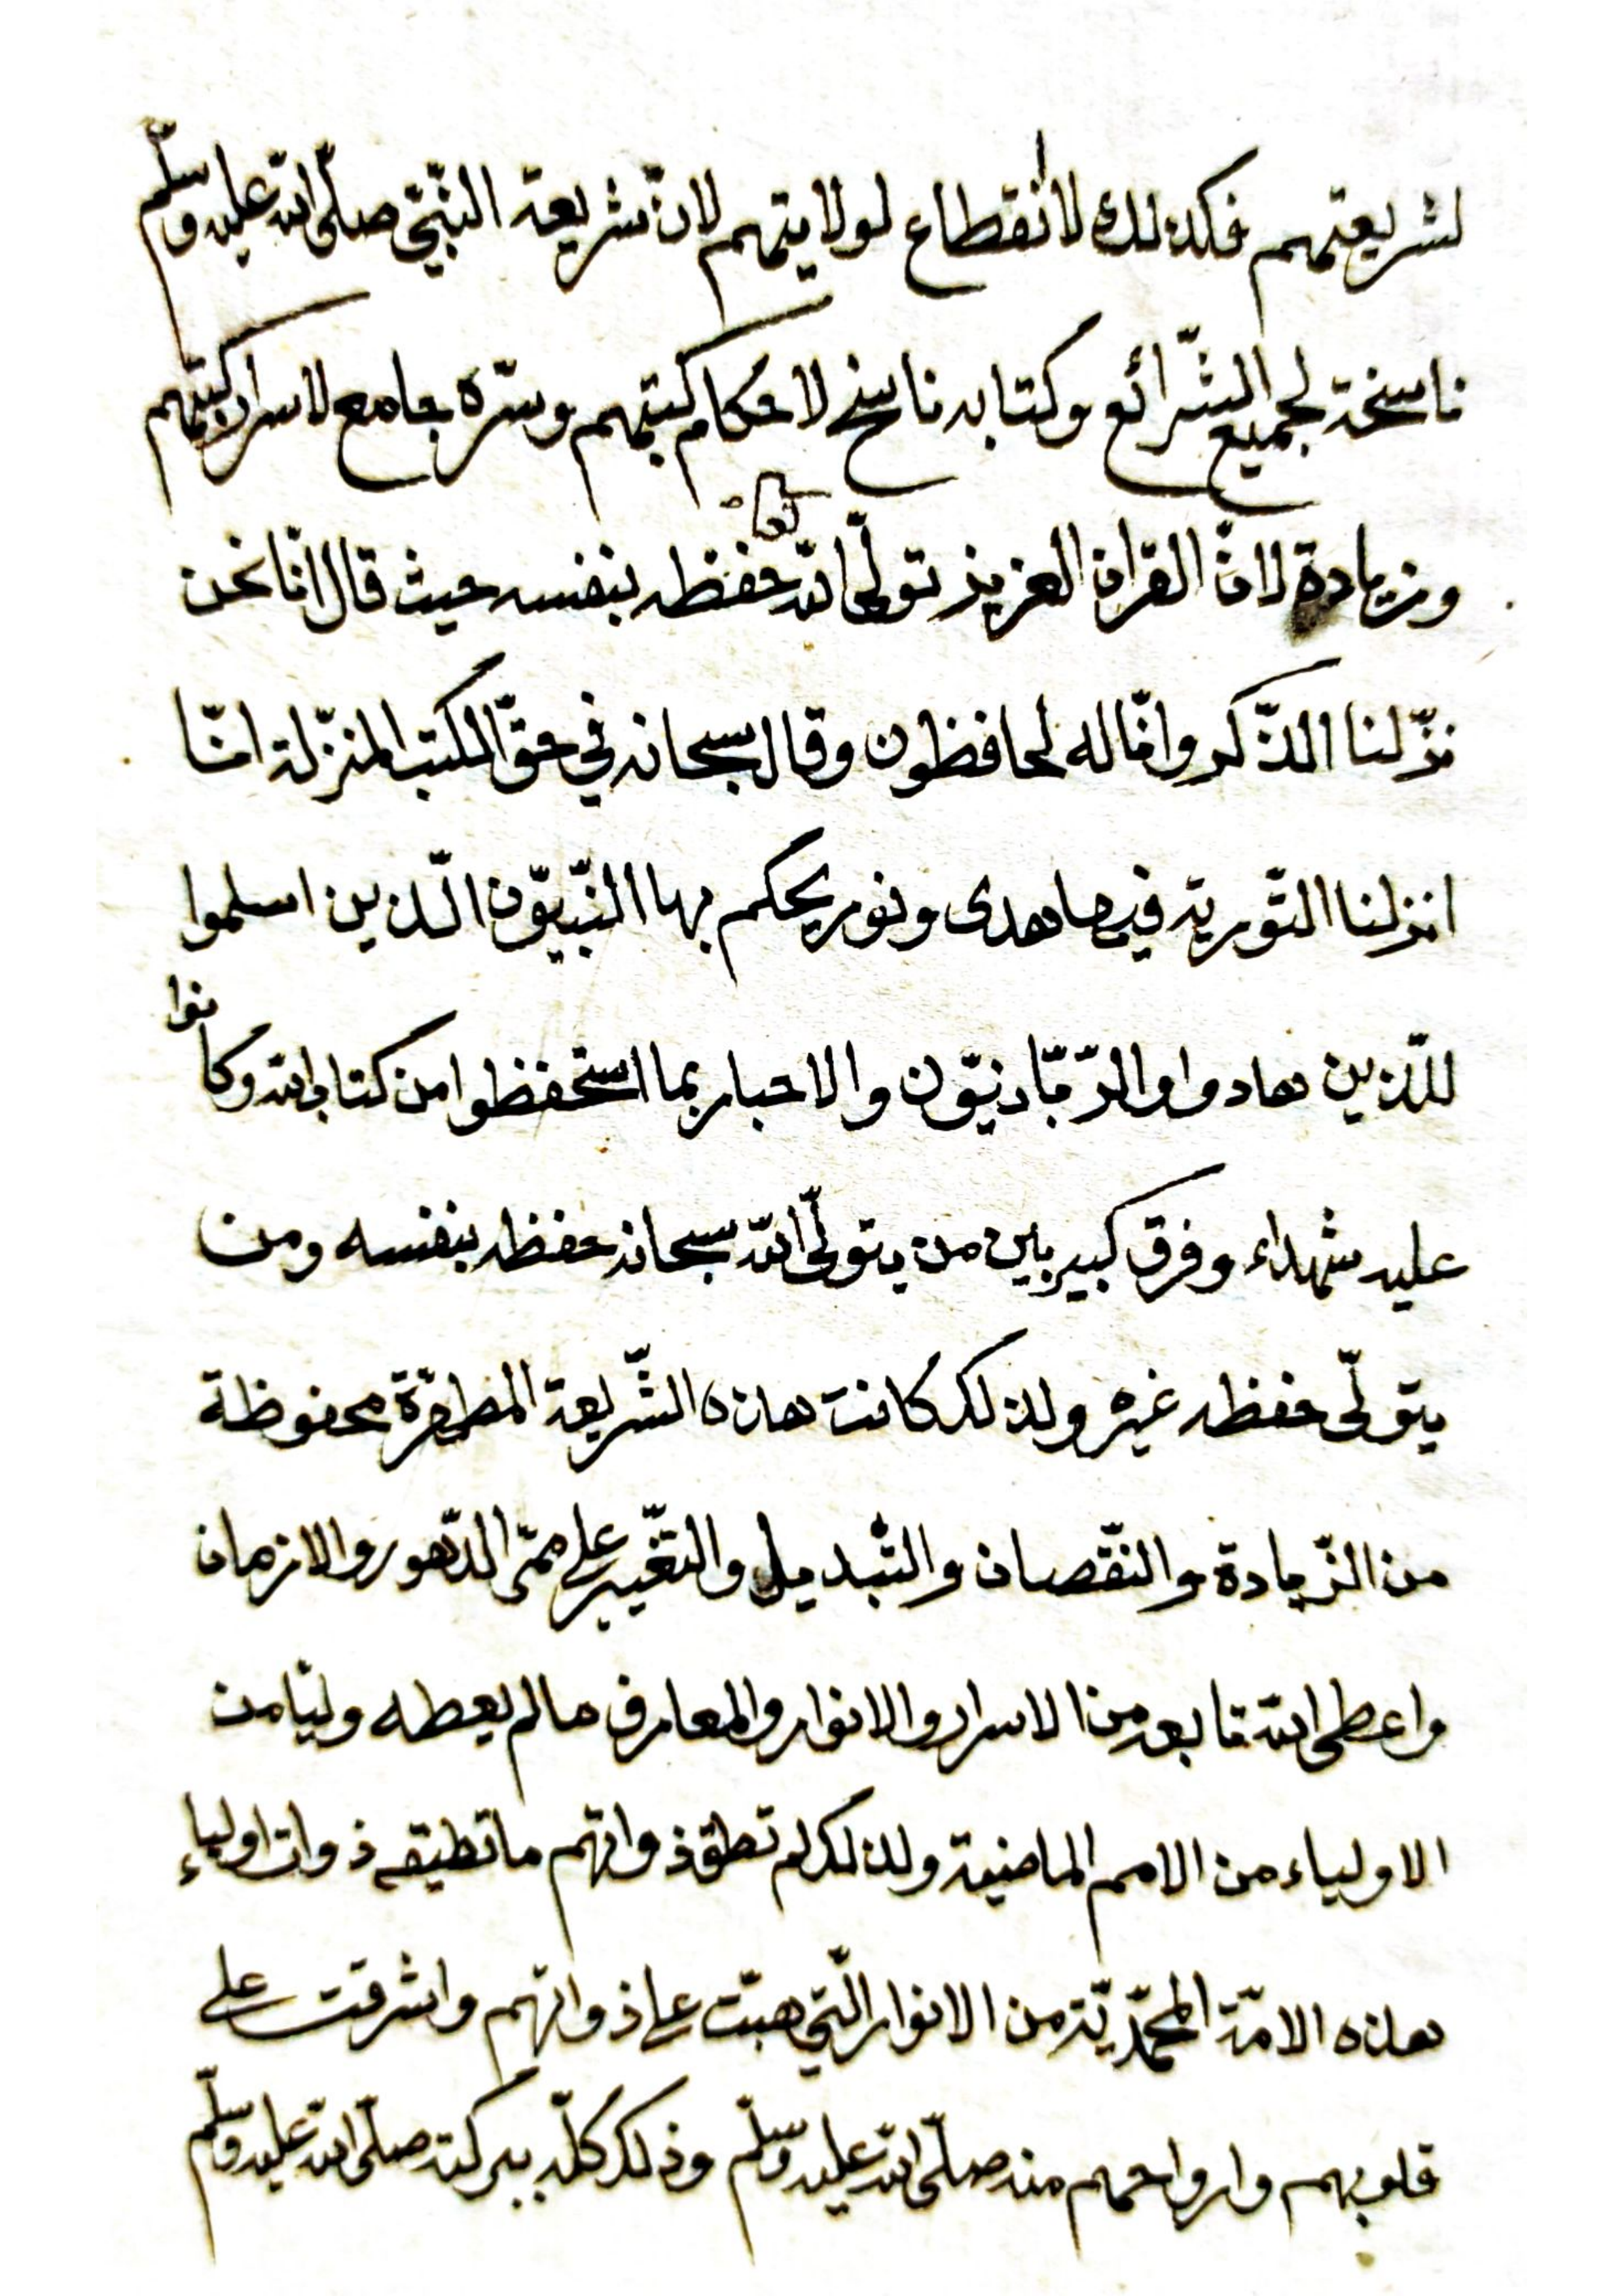 لشريعتهم فكذلك لا انقطاع لولايتهم لانّ شريعة النّبيّ صلّى الله عليه وسلّم
ناسخة لجميع الشّرائع وكتابه ناسخ لاحكام كتبهم وسرّه جامع لاسرار كتبهم
وزيادة لانّ القران العزيز تولّى الله تعالى حفظه بنفسه حيث قال انّا نحن
نزّلنا الذّكر وانّا له لحافظون وقال سبحانه في حقّ الكتب المنزّلة انّا
انزلنا التّورية فيها هدى ونور يحكم بها النّبيّون الّذين اسلموا
للّذين هادوا والرّبّانيّون والاحبار بما استحفظوا من كتاب الله وكانوا
عليه شهداء وفرق كبير بين من يتولّى الله سبحانه حفظه بنفسه ومن
يتولّى حفظه غيره ولذلك كانت هذه الشّريعة المطهّرة محفوظة
من الزّيادة والنّقصان والتّبديل والتّغيير على ممرّ الدّهور والازمان
واعطى الله تابعه من الاسرار والانوار والمعارف ما لم يعطه وليّا من
الاولياء من الامم الماضية ولذلك لم تطق ذواتهم ما تطيقه ذوات اولياء
هذه الامّة المحمّديّة من الانوار الّتي هبّت على ذواتهم واشرقت على
قلوبهم وارواحهم منه صلّى الله عليه وسلّم وذلك كلّه ببركته صلّى الله عليه وسلّم